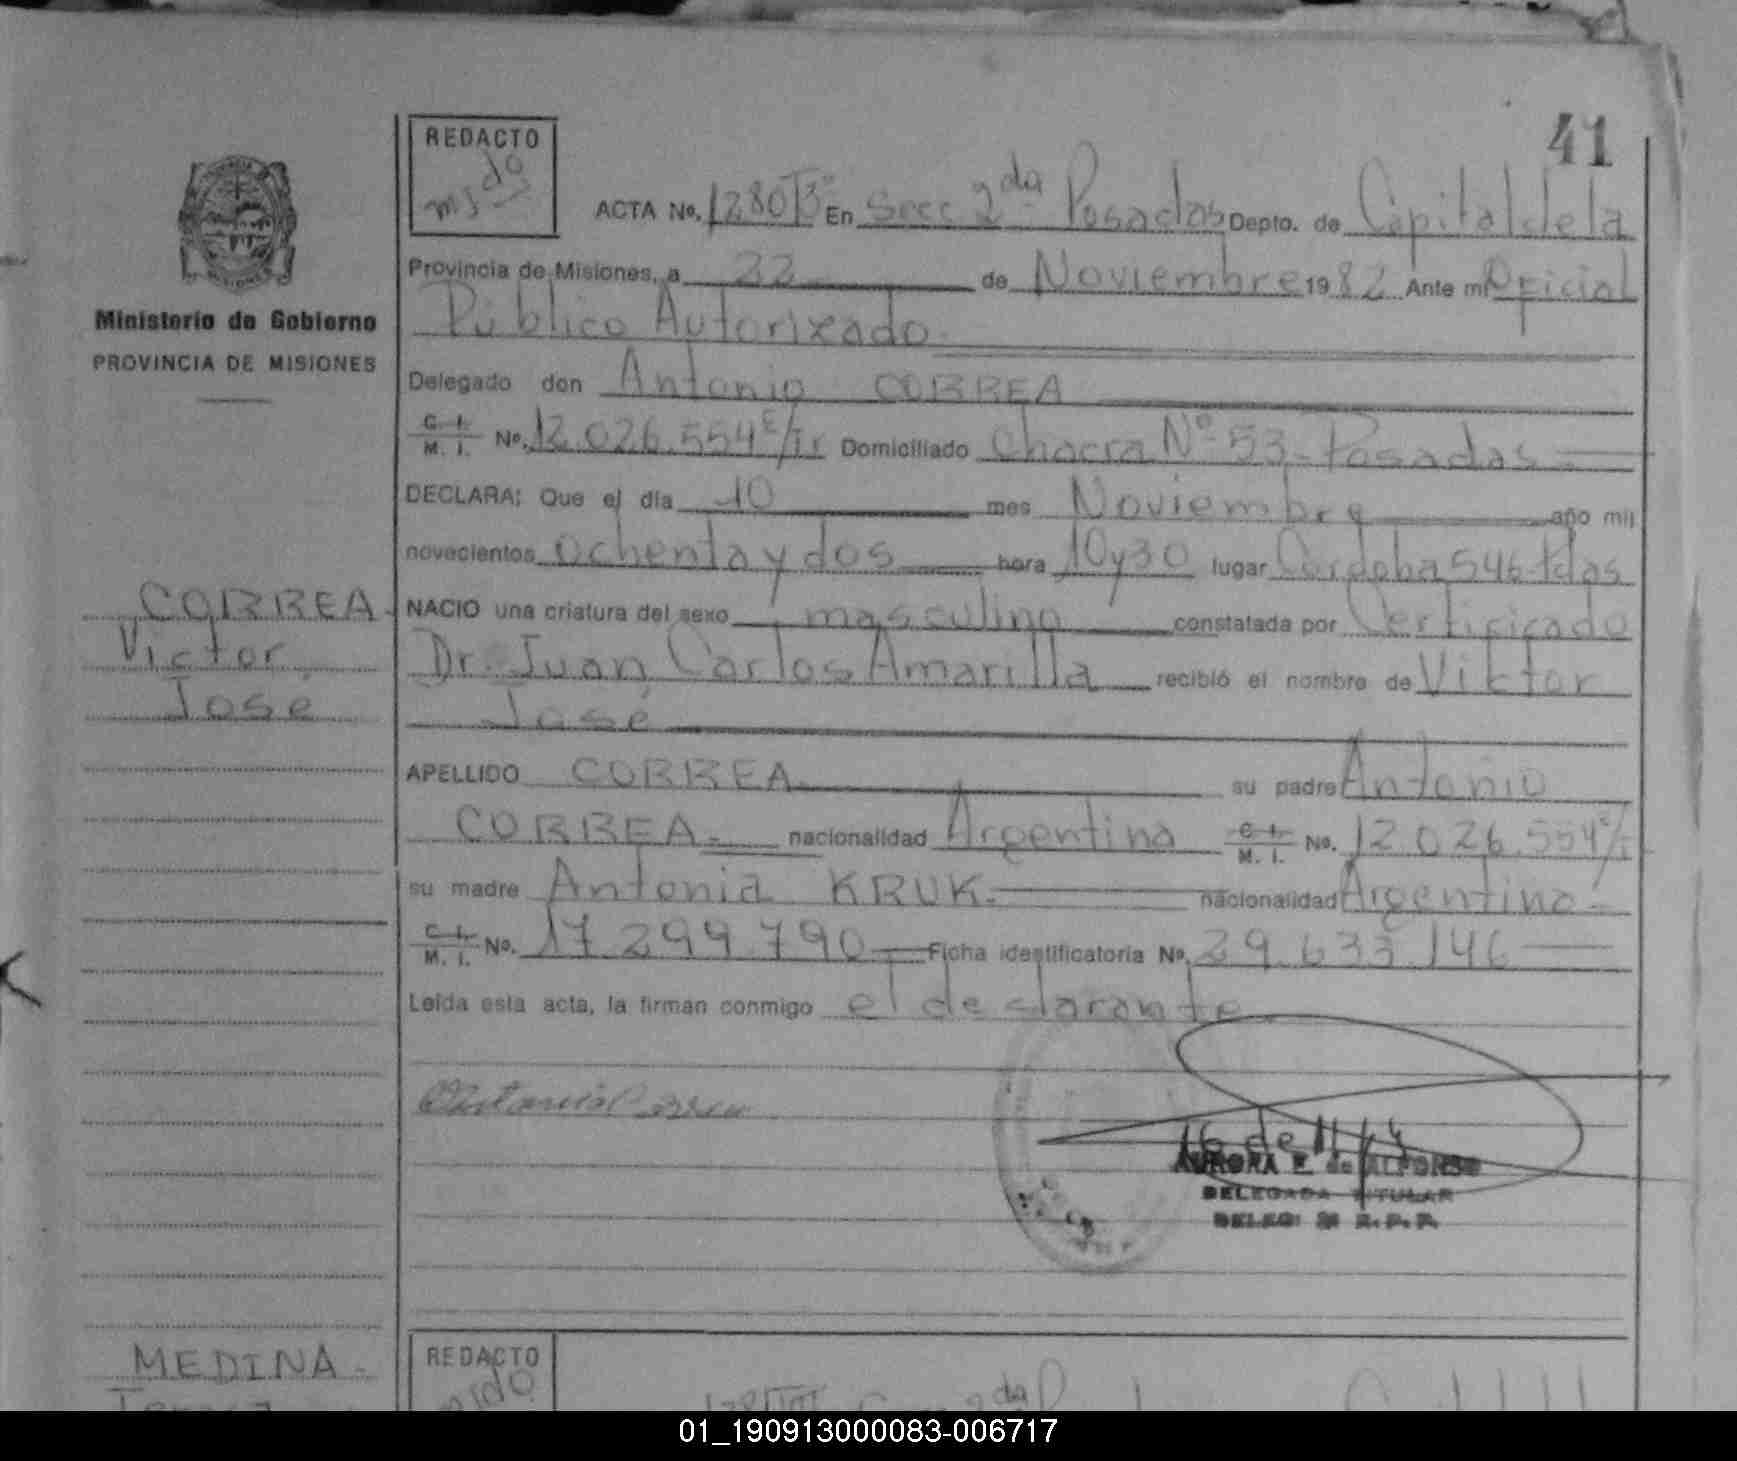 41
REDACTO
ACTA No. 1280 Tº En Secc 2da Posadas Depto. de Capital de la
Provincia de Misiones, a 22 de Noviembre 1982 Ante mi Oficial
Público Autorizado
Ministerio de Gobierno
PROVINCIA DE MISIONES
Delegado don Antonio CORREA
C. I.
M. I. No. 12.026.554 Domiciliado Chacra Nº 53 - Posadas
DECLARA: Que el día 10 mes Noviembre año mil
novecientos ochenta y dos hora 10 y 30 lugar Córdoba 546 Pdas
CORREA
Victor
José
NACIO una criatura del sexo masculino constatada por Certificado
Dr. Juan Carlos Amarilla recibió el nombre de Victor
José
APELLIDO CORREA su padre Antonio
CORREA nacionalidad Argentina C. I.
M. I. No. 12.026.554
su madre Antonia KRUK nacionalidad Argentina
C. I.
M. I. No. 17.299.790 Ficha identificatoria No. 29.633.146
Leída esta acta, la firman conmigo el declarante
Antonio Correa
AURORA E. de ALFONSO
DELEGADA TITULAR
MEDINA
REDACTO
01_190913000083-006717